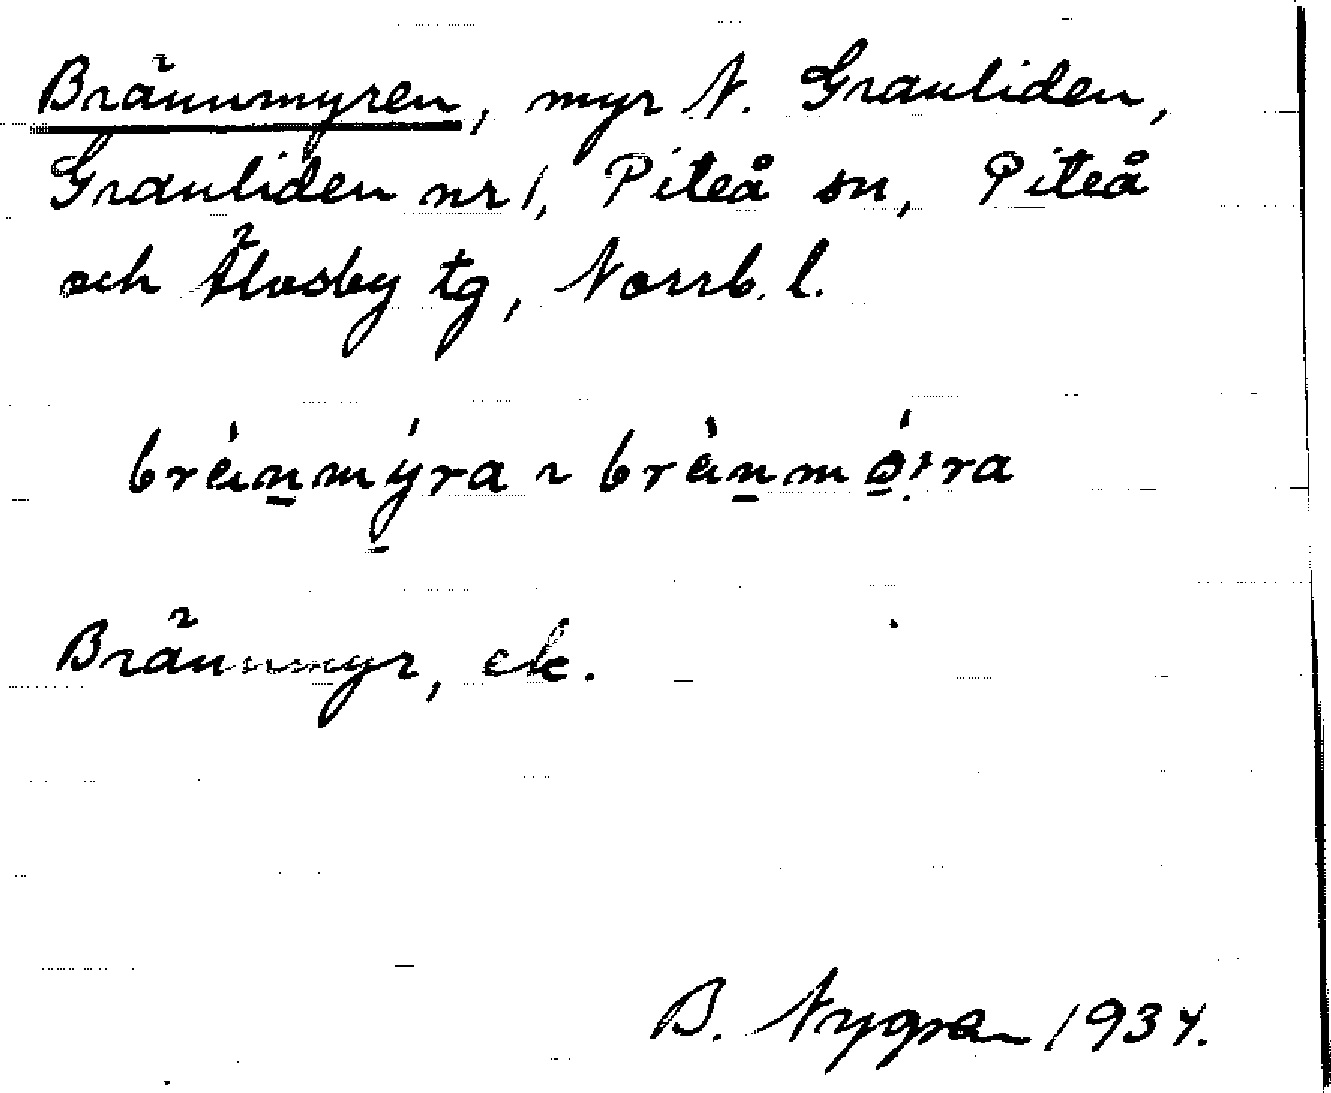 Brännmyren, myr N. Granliden,
Granliden nr 1, Piteå sn, Piteå
och Älvsby tg, Norrb. l.
brèinmýra ~ brèinmǿ:ra
Brännmyr, ek.
B. Nygren 1934.